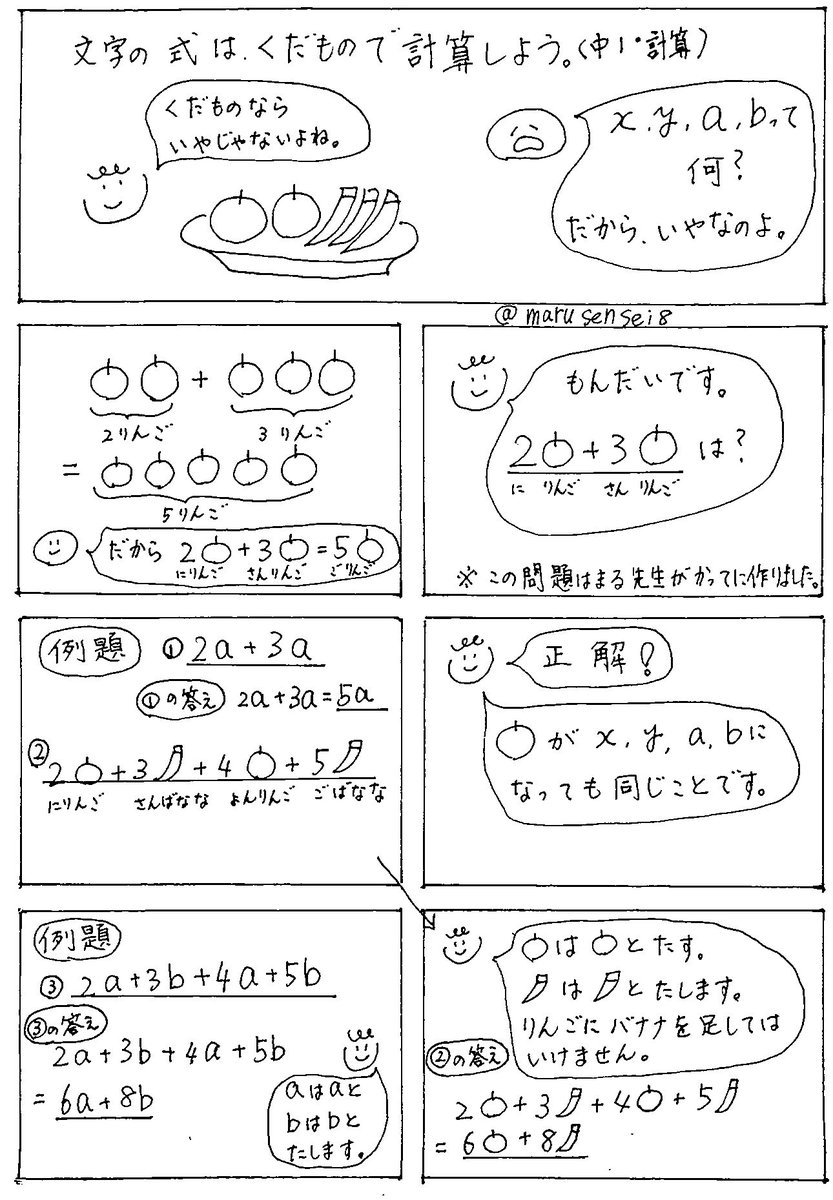 文字の式は、くだもので計算しよう。(中1・計算)
x,y,a,bって
何?
だから、いやなのよ。
くだものなら
いやじゃないよね。
@marusensei8
もんだいです。
2 + 3 は?
に りんご さん りんご
※この問題はまる先生がかってに作りました。
+
2りんご 3りんご
=
5りんご
だから 2 + 3 = 5
にりんご さんりんご ごりんご
正解!
が x,y,a,bに
なっても同じことです。
例題 ① 2a+3a
①の答え 2a+3a=5a
② 2 +3 +4 +5
にりんご さんばなな よんりんご ごばなな
は とたす。
は とたします。
りんごにバナナを足しては
いけません。
②の答え
2 +3 +4 +5
= 6 +8
例題
③ 2a+3b+4a+5b
③の答え
2a+3b+4a+5b
= 6a+8b
aはaと
bはbと
たします。